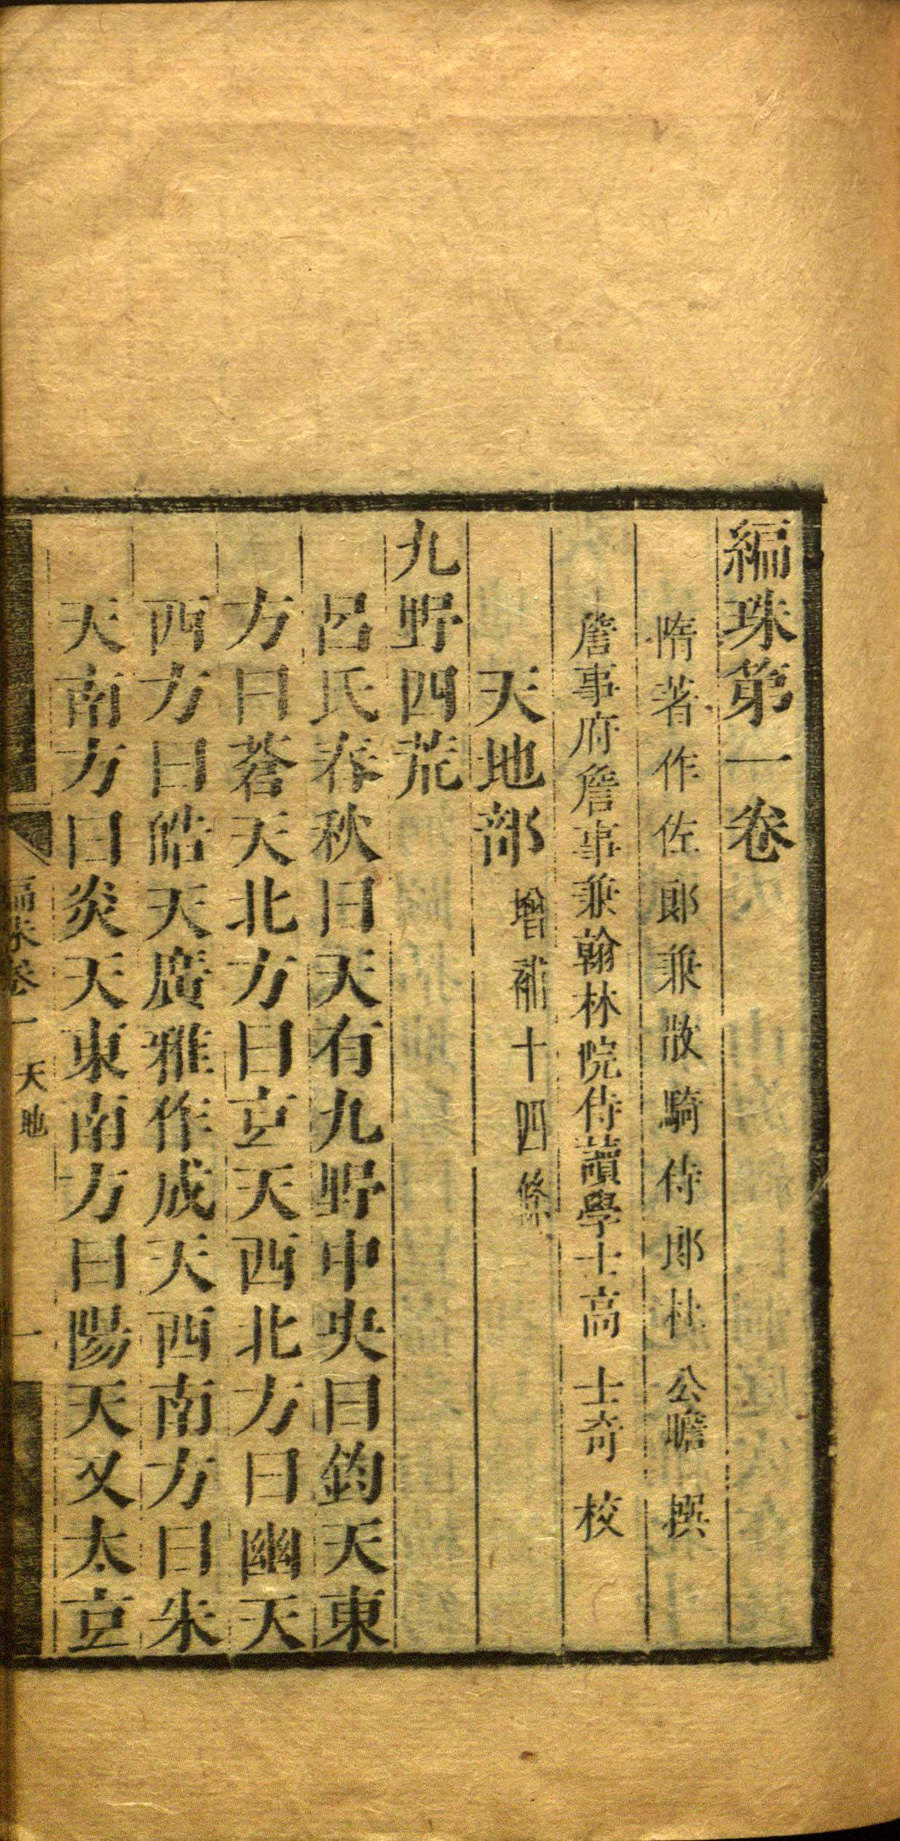 編珠第一卷
隋著作佐郎兼散騎侍郎杜公瞻撰
詹事府詹事兼翰林院侍讀學士高士奇校
天地部 增補十四條
九野四荒
呂氏春秋曰天有九野中央曰鈞天東
方曰蒼天北方曰𤣥天西北方曰幽天
西方曰皓天廣雅作成天西南方曰朱
天南方曰炎天東南方曰陽天又太𤣥
編珠卷一 天地 一